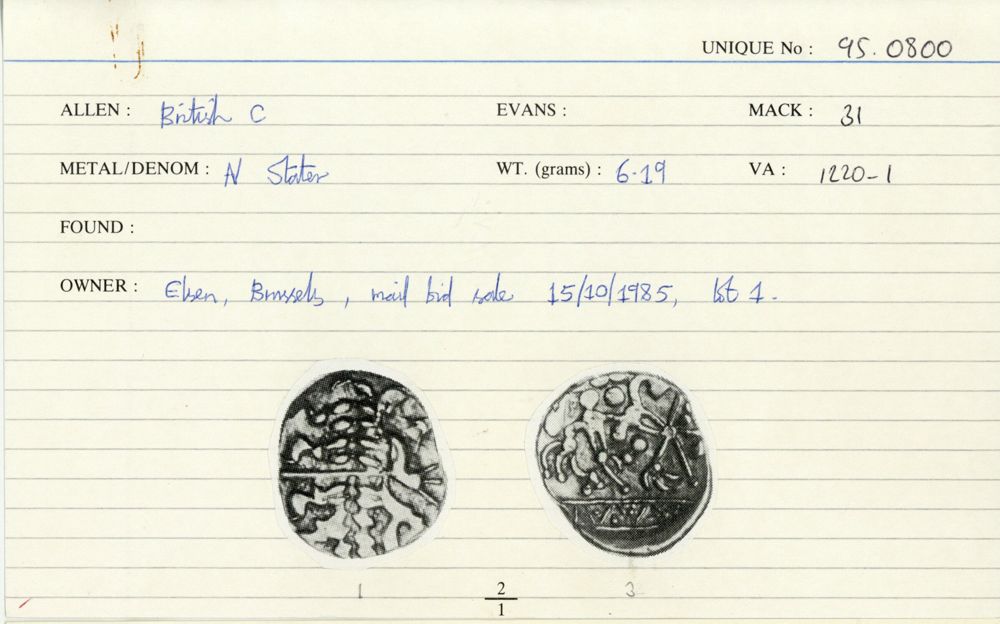 UNIQUE No : 95.0800
ALLEN : British C EVANS : MACK : 31
METAL/DENOM : N Stater WT. (grams) : 6.19 VA : 1220-1
FOUND :
OWNER : Elsen, Brussels, mail bid sale 15/10/1985, lot 1.
1 2/1 3